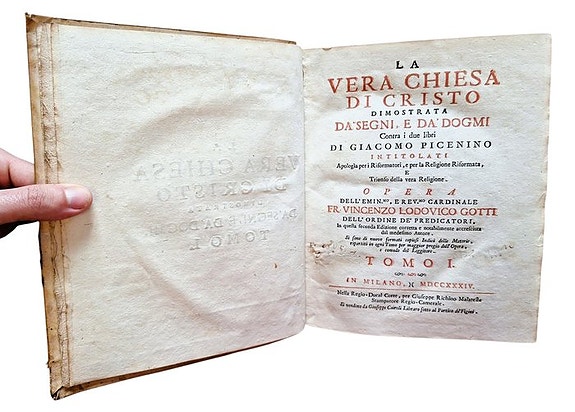 LA
VERA CHIESA
DI CRISTO
DIMOSTRATA
DA' SEGNI, E DA' DOGMI
Contra i due libri
DI GIACOMO PICENINO
INTITOLATI
Apologia per i Riformatori, e per la Religione Riformata,
E
Trionfo della vera Religione.
OPERA
DELL' EMIN.MO, E REV.MO CARDINALE
FR. VINCENZO LODOVICO GOTTI
DELL' ORDINE DE' PREDICATORI,
In questa seconda Edizione corretta e notabilmente accresciuta
dal medesimo Autore.
Si sono di nuovo formati copiosi Indici delle Materie,
ripartiti in ogni Tomo per maggior pregio dell' Opera,
e comodo del Leggitore.
TOMO I.
IN MILANO, MDCCXXXIV.
Nella Regio-Ducal Corte, per Giuseppe Richino Malatesta
Stampatore Regio-Camerale.
Si vendono da Giuseppe Cairoli Libraro sotto al Portico de' Figini.